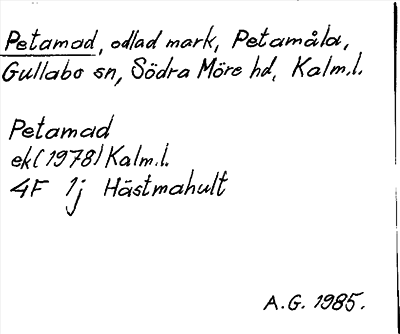 Petamad, odlad mark, Petamåla,
Gullabo sn, Södra Möre hd, Kalm.l.
Petamad
ek(1978) Kalm.l.
4F 1j Hästmahult
A.G. 1985.